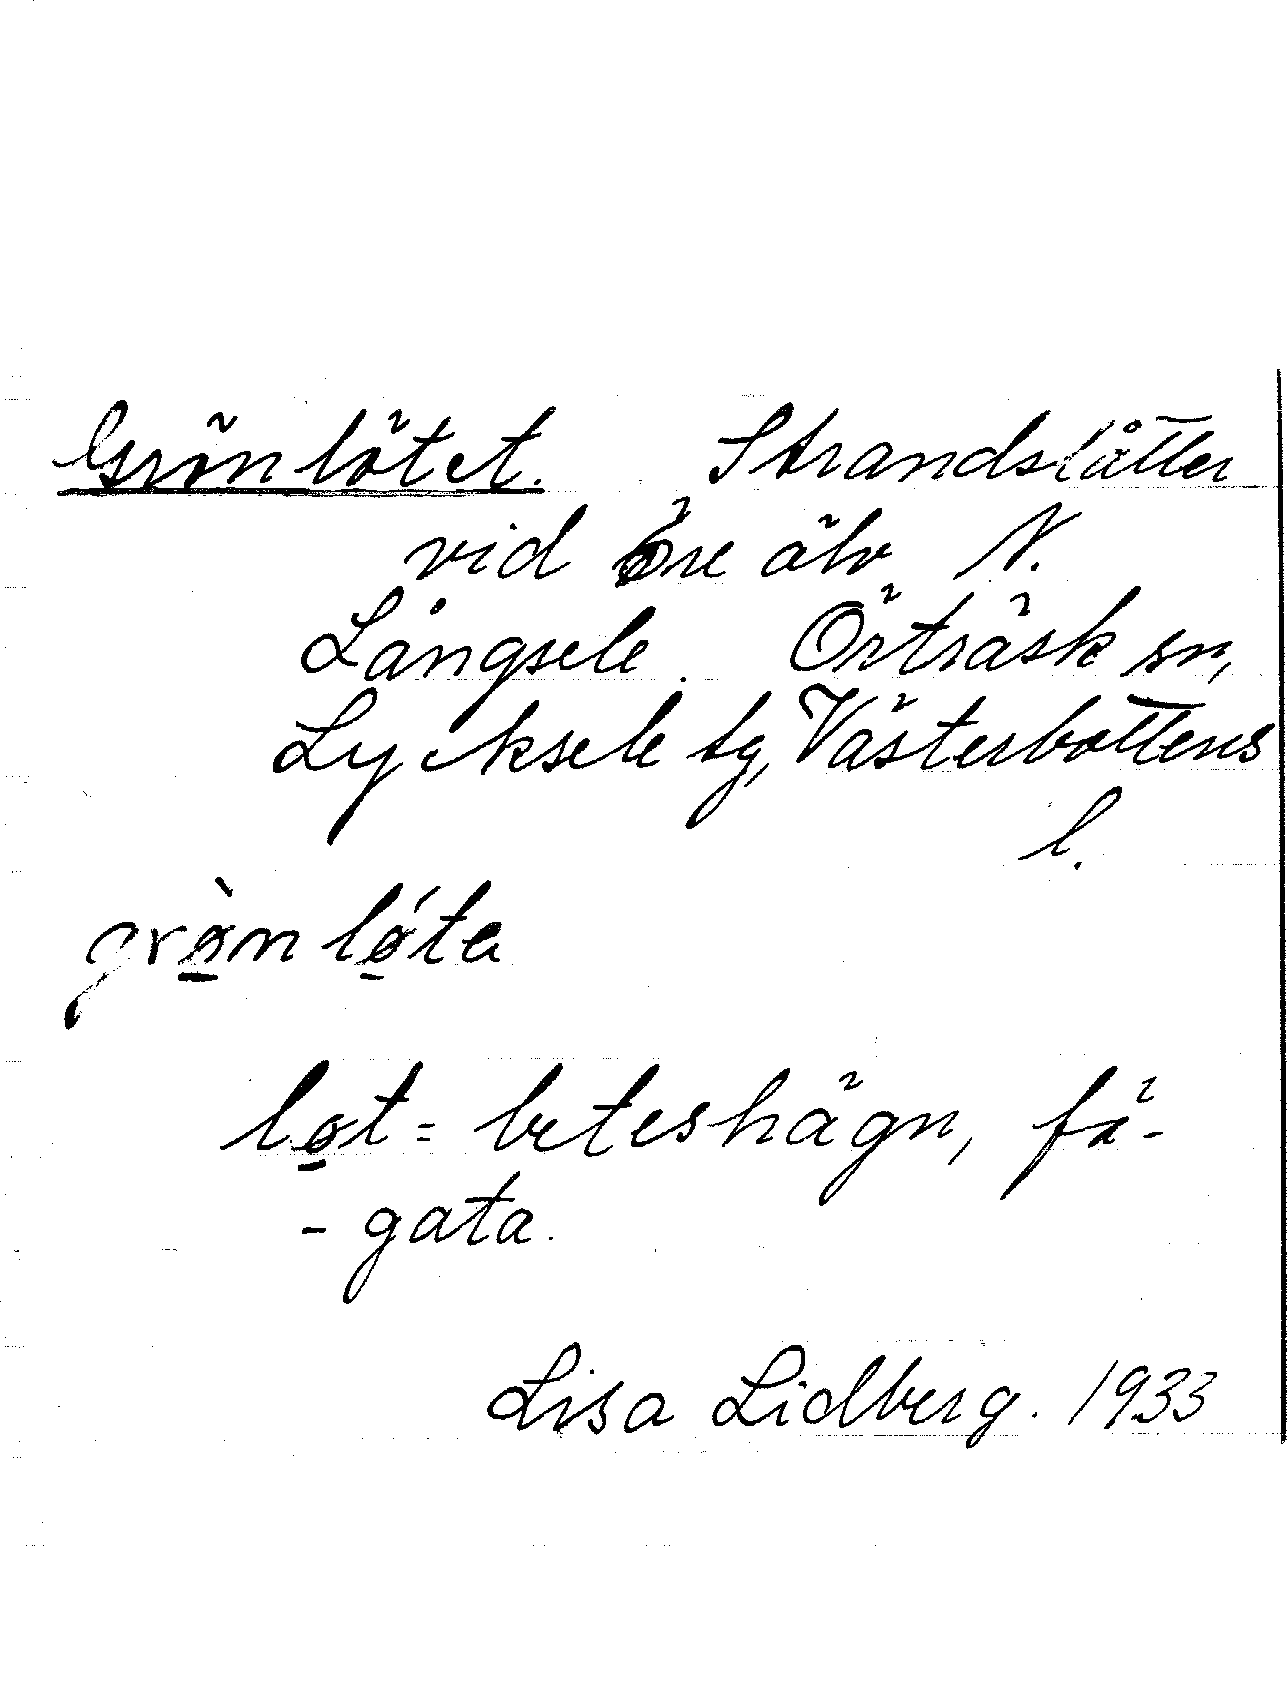 Grönlötet. Strandslåtter
vid Öre älv N.
Långsele. Örträsk sn,
Lycksele tg, Västerbottens
l.
grø̀nløta
løt = beteshägn, fä-
- gata.
Lisa Lidberg. 1933